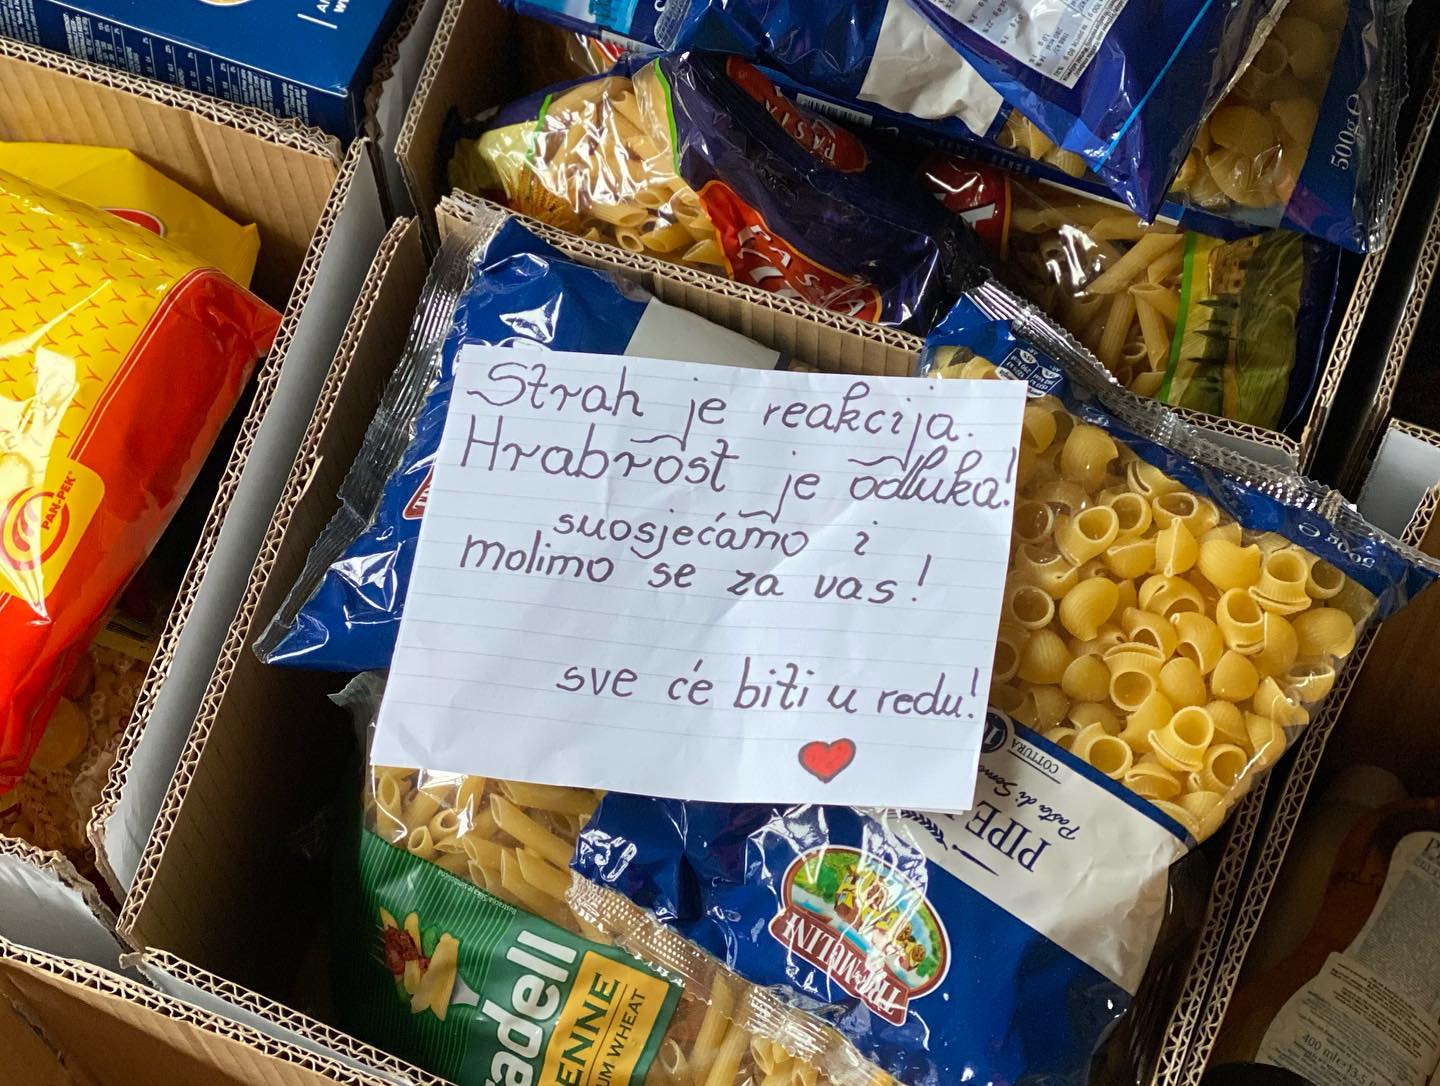 PASTA
500g e
PAN-PEK
Strah je reakcija.
Hrabrost je odluka!
suosjećamo i
molimo se za vas!
sve će biti u redu!
500g e
COTTURA
PIPE
Pasta di
TRE MULINI
adell
ENNE
UM WHEAT
400 ml